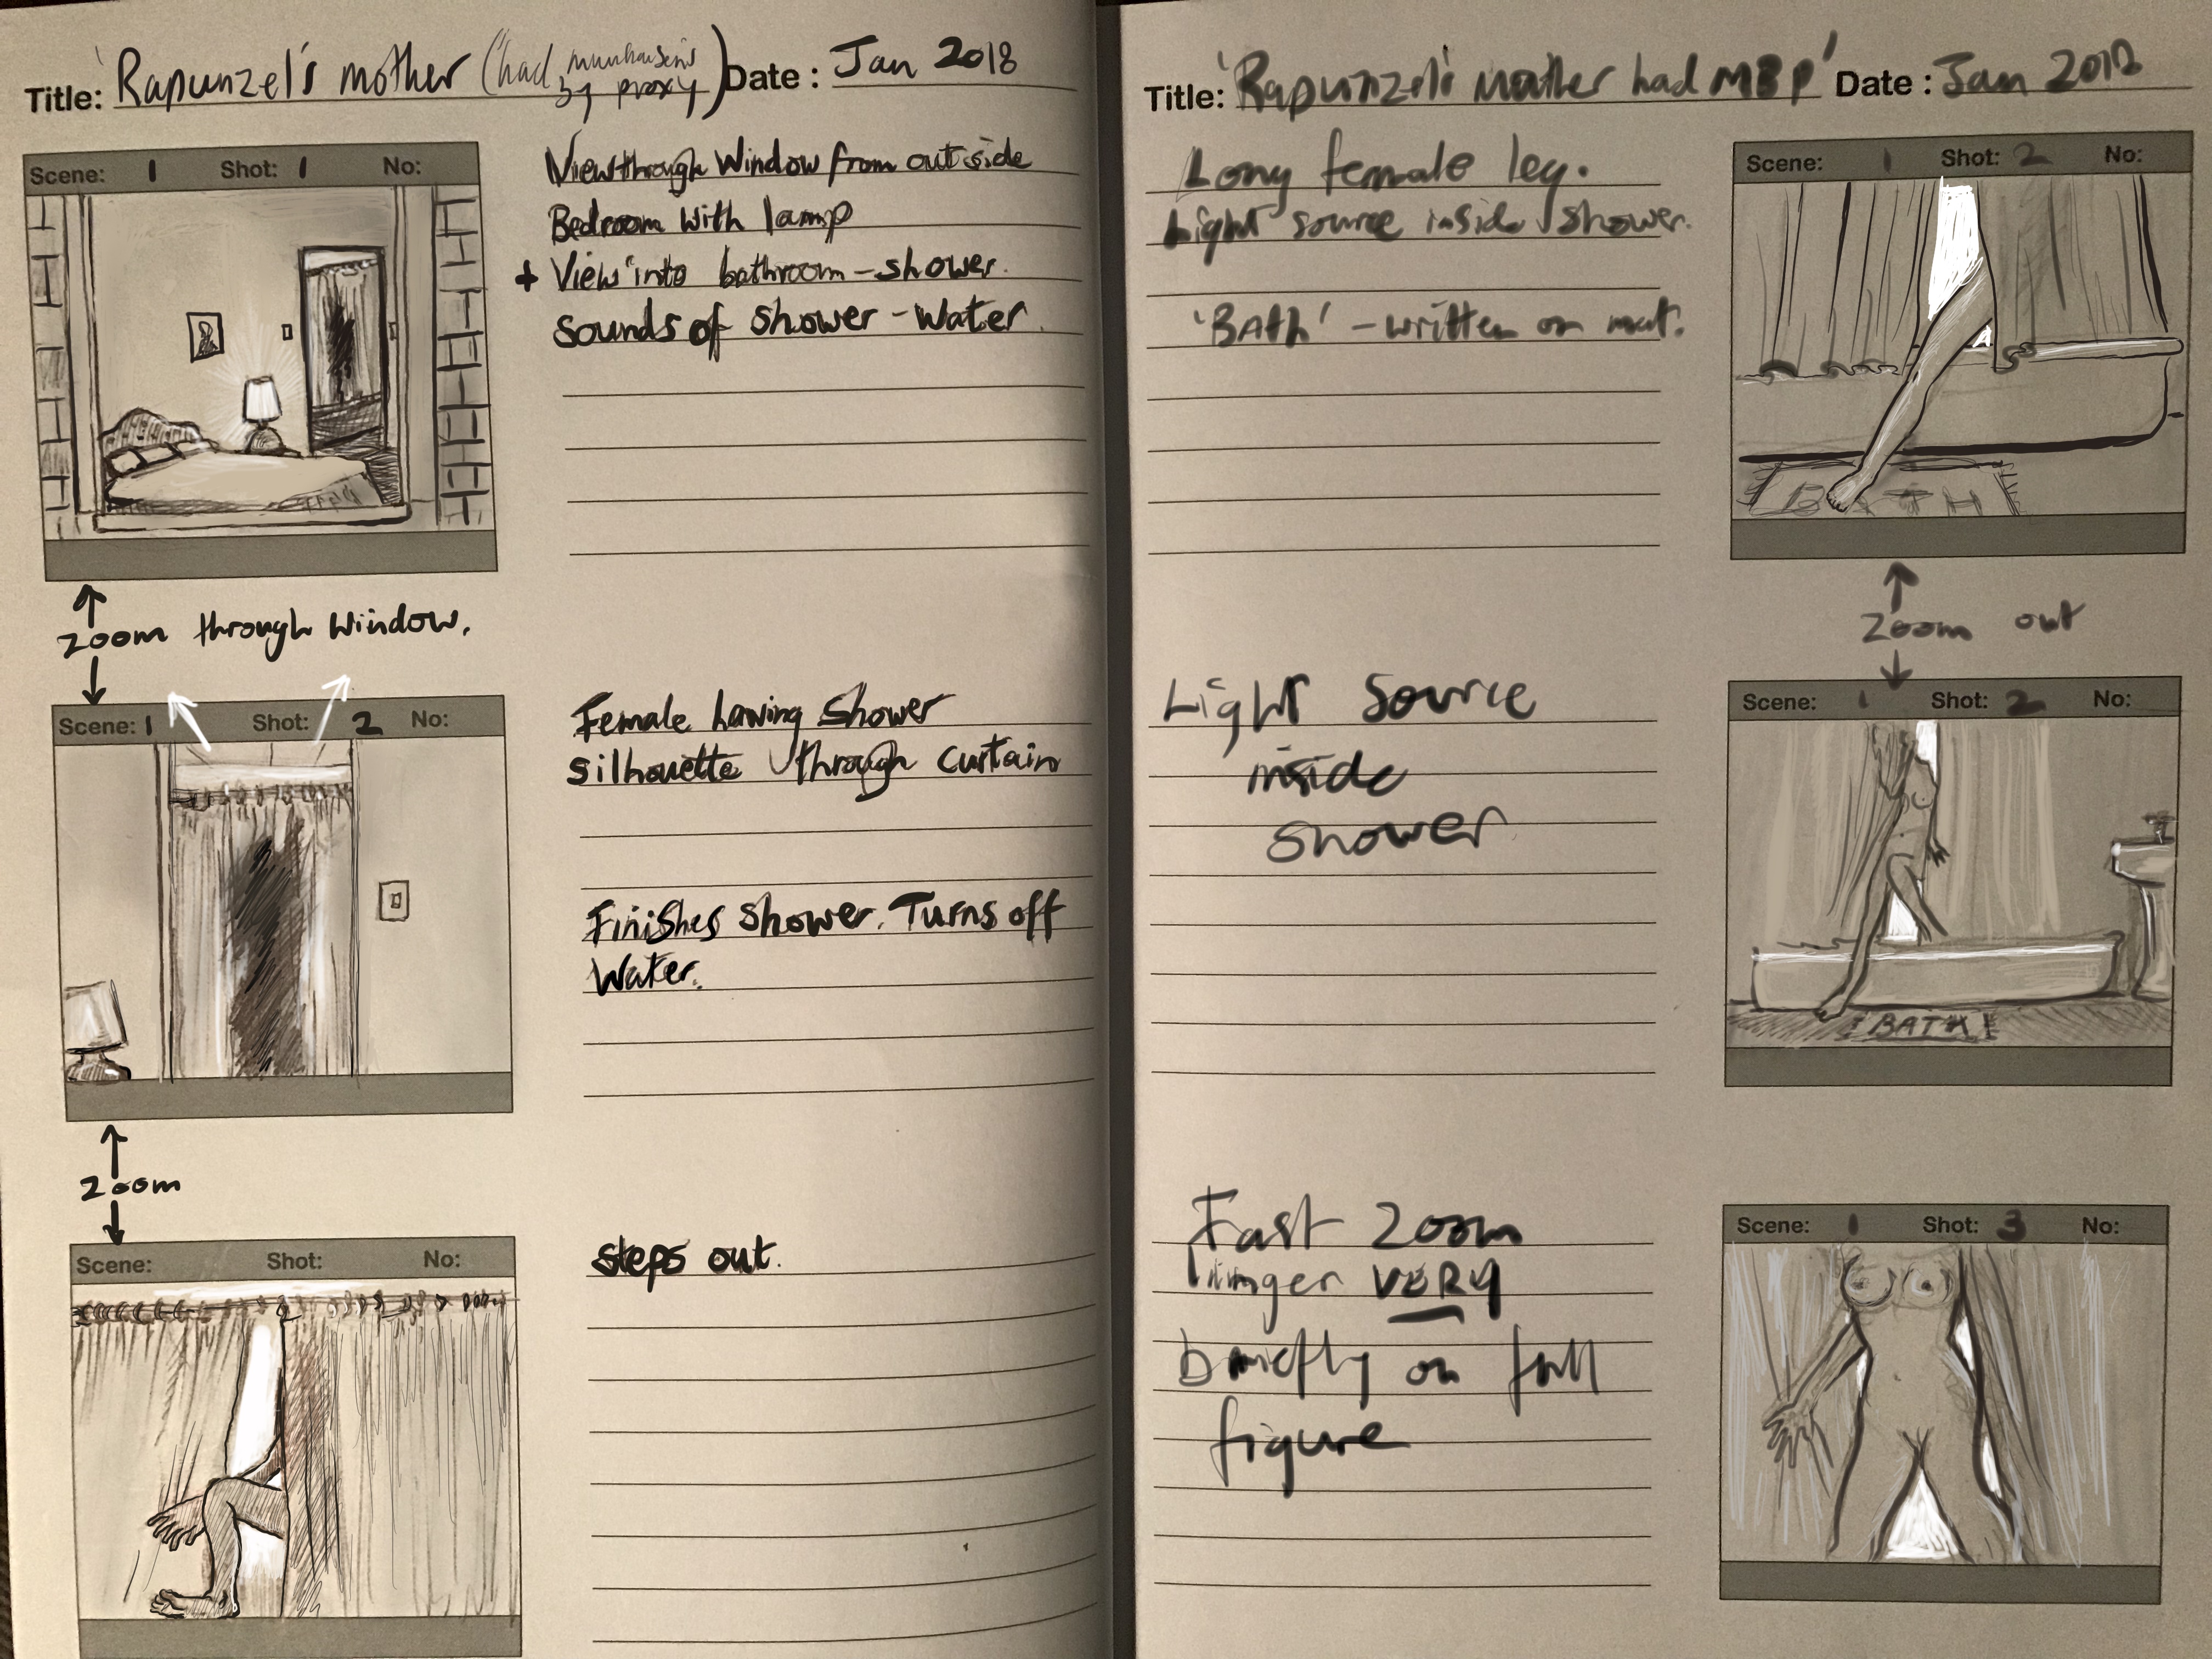 Title: 'Rapunzel's mother (had munchausens by proxy) Date: Jan 2018
Scene: 1 Shot: 1 No:
View through Window from outside
Bedroom with lamp
+ View into bathroom - shower.
Sounds of shower - Water.
zoom through Window.
Scene: 1 Shot: 2 No:
Female having Shower
silhouette through curtain
Finishes shower. Turns off
Water.
zoom
Scene: Shot: No:
steps out.
Title: 'Rapunzel's mother had MBP' Date: Jan 2018
Scene: 1 Shot: 2 No:
Long female leg.
Light source inside shower.
'BATH' - written on mat.
BATH
Zoom out
Scene: 1 Shot: 2 No:
Light Source
inside
shower
BATH
Scene: 1 Shot: 3 No:
Fast Zoom
linger VERY
briefly on full
figure